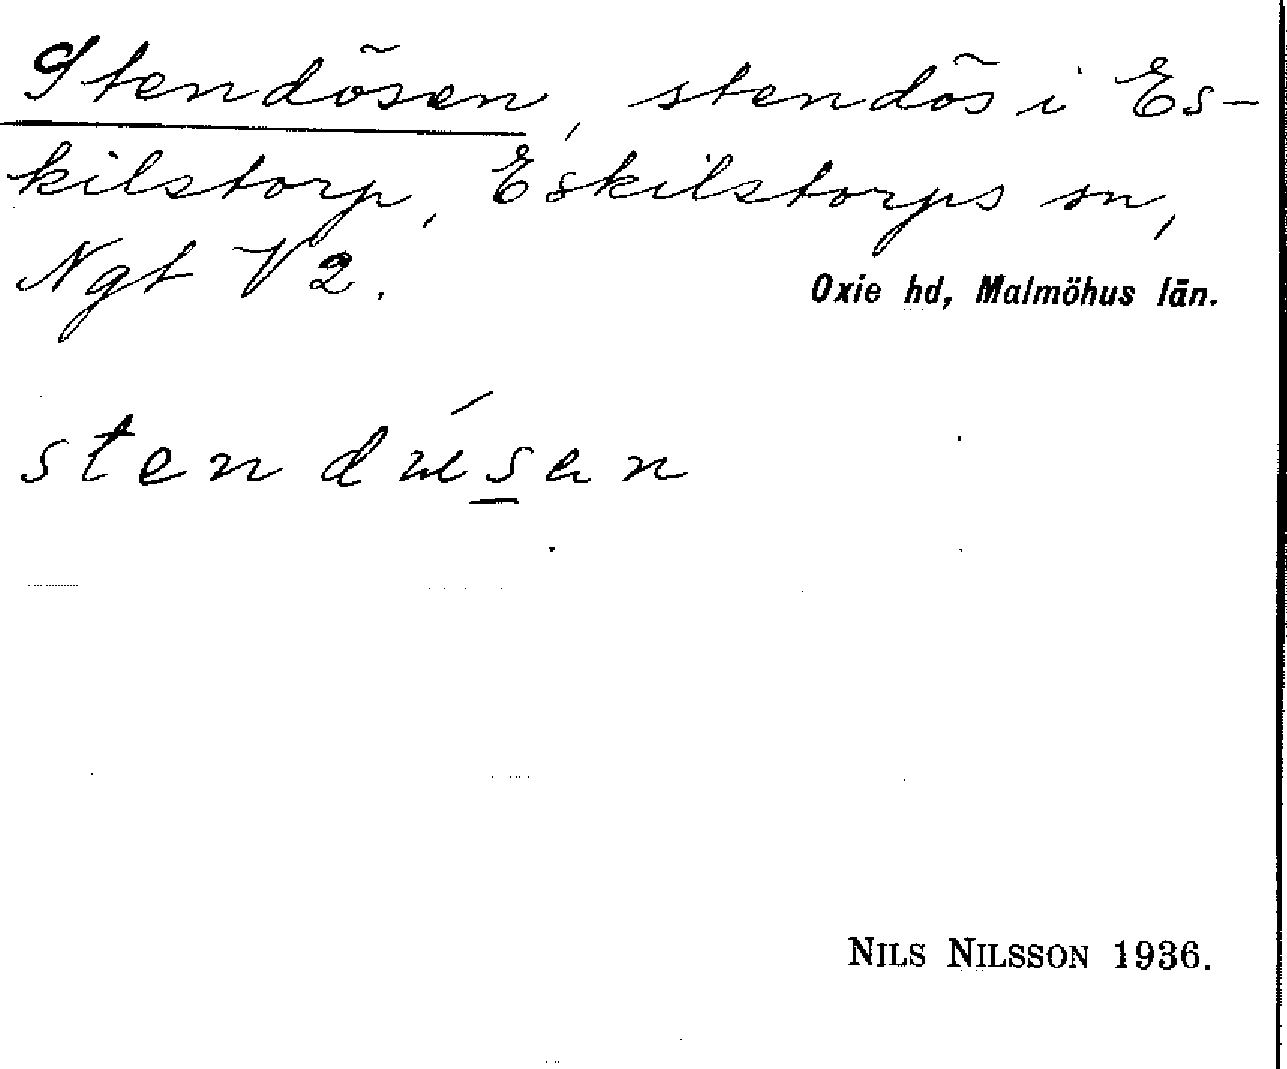 Stendösen, stendös i Es-
kilstorp, Eskilstorps sn,
Ngt V 2.
Oxie hd, Malmöhus län.
NILS NILSSON 1936.